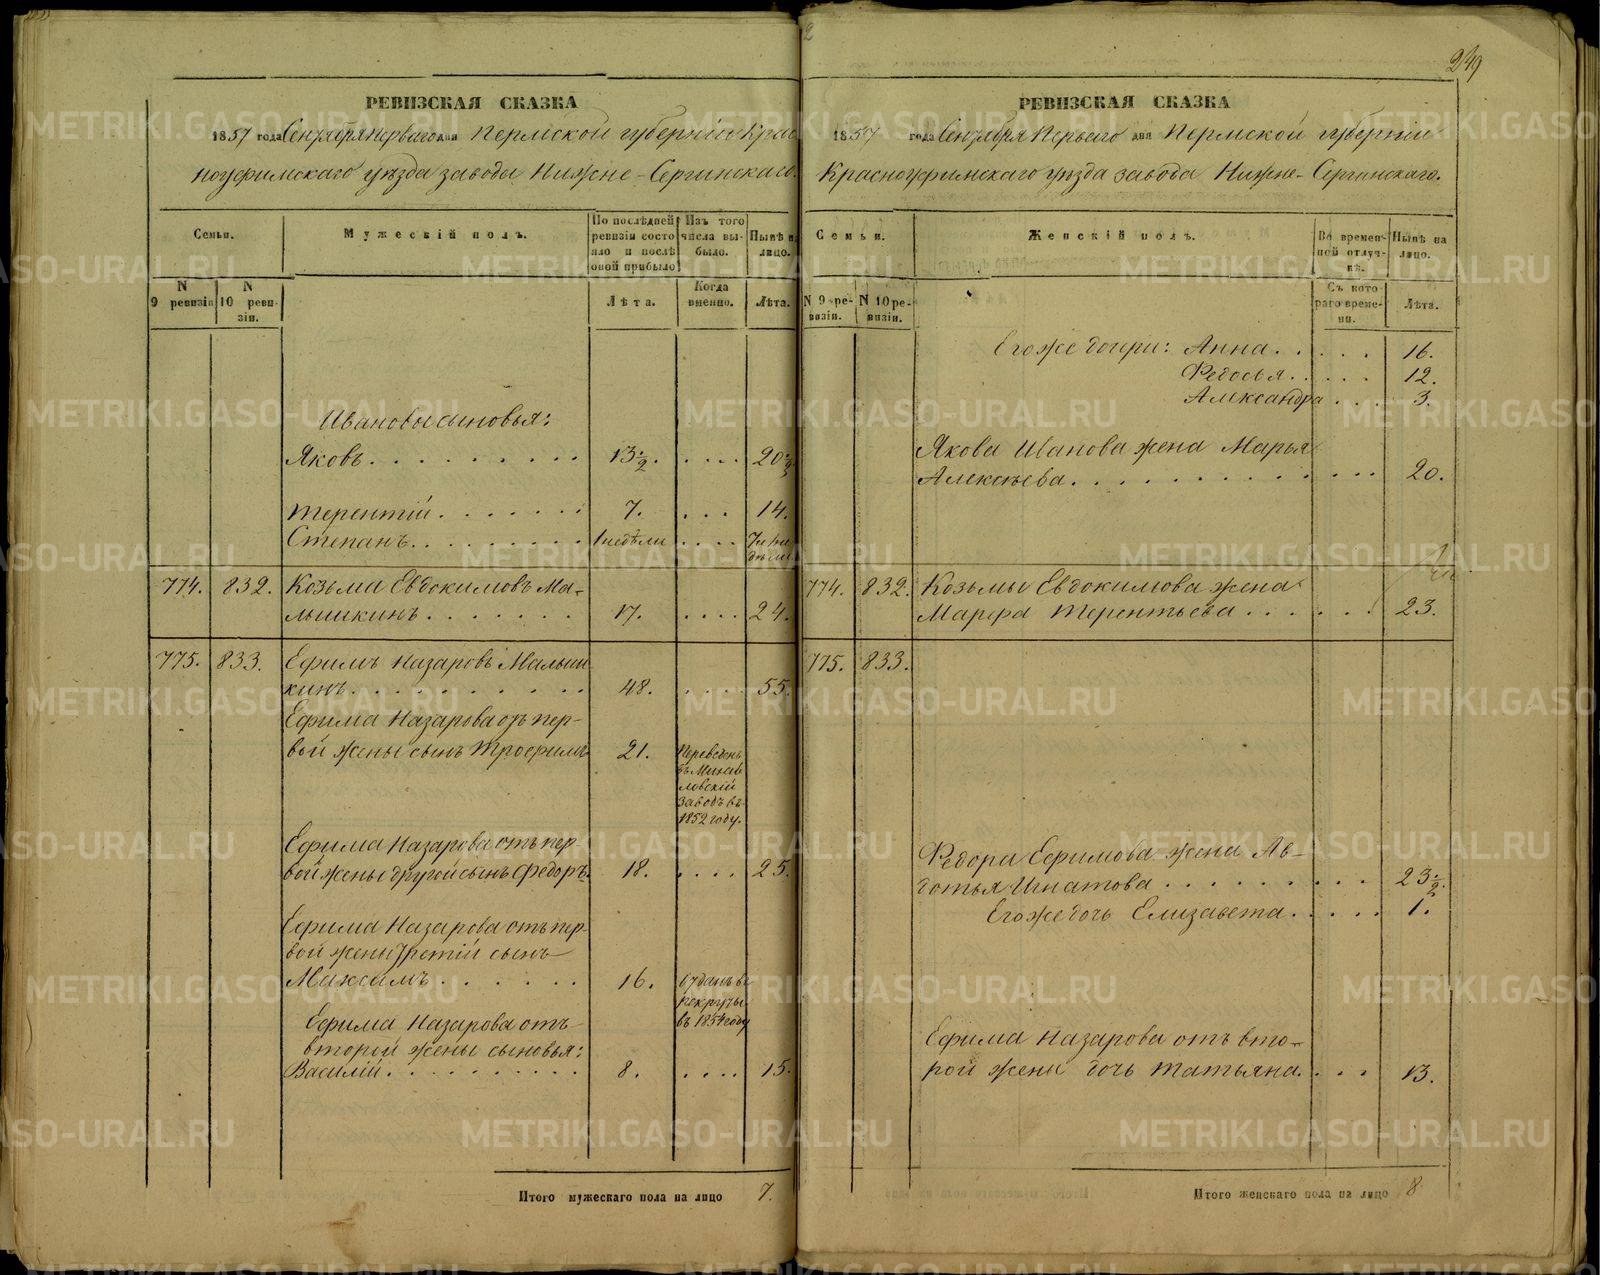 249
РЕВИЗСКАЯ СКАЗКА
1857 года Сентября перваго дня Пермской губерніи Крас
ноуфимскаго уѣзда завода Нижне-Сергинскаго.
Семьи.
Мужескій полъ.
По послѣдней ревизіи состояло и послѣ оной прибыло
Изъ того числа выбыло.
Нынѣ на лицо.
N 9 ревизіи
N 10 ревизіи.
Лѣта.
Когда именно.
Лѣта.
Ивановы сыновья:
Яковъ. 13½. .... 20½
Терентій. 7. ... 14.
Степанъ. 1 недѣли ....
774. 832. Козьма Евдокимовъ Ма-
лышкинъ. 17. .... 24.
775. 833. Ефимъ Назаровъ Малыш
кинъ. 48. .... 55.
Ефима Назарова отъ пер-
вой жены сынъ Трофимъ 21.
Переведенъ
въ Михай
ловскій
заводъ въ
1852 году.
Ефима Назарова отъ пер-
вой жены другой сынъ Федоръ. 18. .... 25.
Ефима Назарова отъ пер-
вой жены третій сынъ
Максимъ. 16. Отданъ въ
рекруты
въ 1854 году
Ефима Назарова отъ
второй жены сыновья:
Василій. 8. .... 15.
Итого мужескаго пола на лицо 7.
РЕВИЗСКАЯ СКАЗКА
1857 года Сентября Перваго дня Пермской губерніи
Красноуфимскаго уѣзда завода Нижне-Сергинскаго.
Семьи.
Женскій полъ.
Во временной отлучкѣ.
Нынѣ на лицо.
N 9 ревизіи.
N 10 ревизіи.
Съ котораго времени.
Лѣта.
Егоже дочери: Анна. 16.
Федосья. 12.
Александра. 3.
Якова Иванова жена Марья
Алексѣева. 20.
774. 832. Козьмы Евдокимова жена
Марфа Терентьева. 23.
775. 833.
Федора Ефимова жена Ав-
дотья Игнатова. 23½.
Егоже дочь Елизавета. 1.
Ефима Назарова отъ вто-
рой жены дочь Татьяна. 13.
Итого женскаго пола на лицо 8
METRIKI.GASO-URAL.RU